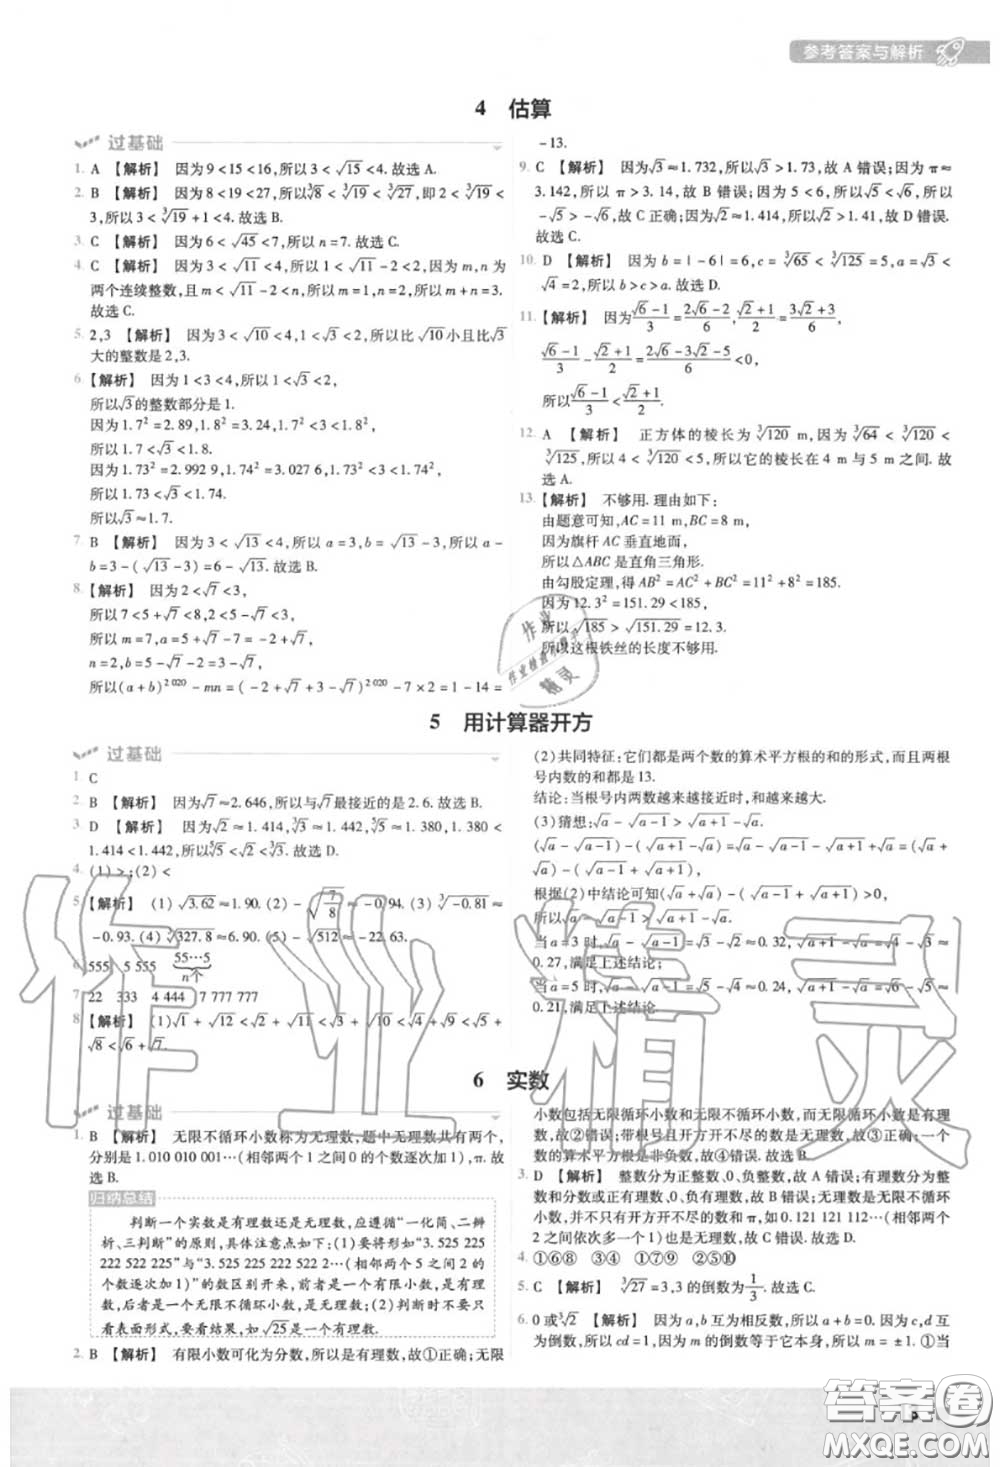 参考答案与解析
4 估算
过基础
1. A 【解析】 因为 9<15<16,所以 3<√15<4. 故选 A.
2. B 【解析】 因为 8<19<27,所以∛8<∛19<∛27,即 2<∛19<
3,所以 3<∛19+1<4. 故选 B.
3. C 【解析】 因为 6<√45<7,所以 n=7. 故选 C.
4. C 【解析】 因为 3<√11<4,所以 1<√11-2<2,因为 m,n 为
两个连续整数,且 m<√11-2<n,所以 m=1,n=2,所以 m+n=3.
故选 C.
5. 2,3 【解析】 因为 3<√10<4,1<√3<2,所以比√10小且比√3
大的整数是 2,3.
6. 【解析】 因为 1<3<4,所以 1<√3<2,
所以√3的整数部分是 1.
因为 1.7²=2.89,1.8²=3.24,1.7²<3<1.8²,
所以 1.7<√3<1.8.
因为 1.73²=2.992 9,1.74²=3.027 6,1.73²<3<1.74²,
所以 1.73<√3<1.74.
所以√3≈1.7.
7. B 【解析】 因为 3<√13<4,所以 a=3,b=√13-3,所以 a-
b=3-(√13-3)=6-√13. 故选 B.
8. 【解析】 因为 2<√7<3,
所以 7<5+√7<8,2<5-√7<3,
所以 m=7,a=5+√7-7=-2+√7,
n=2,b=5-√7-2=3-√7,
所以(a+b)²⁰²⁰-mn=(-2+√7+3-√7)²⁰²⁰-7×2=1-14=
-13.
9. C 【解析】 因为√3≈1.732,所以√3>1.73,故 A 错误;因为 π≈
3.142,所以 π>3.14,故 B 错误;因为 5<6,所以√5<√6,所以
-√5>-√6,故 C 正确;因为√2≈1.414,所以√2>1.41,故 D 错误.
故选 C.
10. D 【解析】 因为 b=|-6|=6,c=∛65<∛125=5,a=√3<
√4=2,所以 b>c>a. 故选 D.
11. 【解析】 因为(√6-1)/3=(2√6-2)/6,(√2+1)/2=(3√2+3)/6,
(√6-1)/3-(√2+1)/2=(2√6-3√2-5)/6<0,
所以(√6-1)/3<(√2+1)/2.
12. A 【解析】 正方体的棱长为∛120 m,因为∛64<∛120<
∛125,所以 4<∛120<5,所以它的棱长在 4 m 与 5 m 之间. 故
选 A.
13. 【解析】 不够用. 理由如下:
由题意可知,AC=11 m,BC=8 m,
因为旗杆 AC 垂直地面,
所以△ABC 是直角三角形.
由勾股定理,得 AB²=AC²+BC²=11²+8²=185.
因为 12.3²=151.29<185,
所以√185>√151.29=12.3.
所以这根铁丝的长度不够用.
5 用计算器开方
过基础
1 C
2. B 【解析】 因为√7≈2.646,所以与√7最接近的是 2.6. 故选 B.
3. D 【解析】 因为√2≈1.414,∛3≈1.442,⁵√5≈1.380,1.380<
1.414<1.442,所以⁵√5<√2<∛3. 故选 D.
4. (1)>;(2)<
5. 【解析】 (1)√3.62≈1.90. (2)-√(7/8)≈-0.94. (3)∛-0.81≈
-0.93. (4)∛327.8≈6.90. (5)-√512≈-22.63.
6. 555 5 555 55…5 n个
7. 22 333 4 444 7 777 777
8. 【解析】 (1)√1+√12<√2+√11<√3+√10<√4+√9<√5+
√8<√6+√7.
(2)共同特征:它们都是两个数的算术平方根的和的形式,而且两根
号内数的和都是 13.
结论:当根号内两数越来越接近时,和越来越大.
(3)猜想:√a-√(a-1)>√(a+1)-√a.
(√a-√(a-1))-(√(a+1)-√a)=√a-√(a-1)-√(a+1)+√a=(√a+
√a)-(√(a-1)+√(a+1)),
根据(2)中结论可知(√a+√a)-(√(a-1)+√(a+1))>0,
所以√a-√(a-1)>√(a+1)-√a.
当 a=3 时,√a-√(a-1)=√3-√2≈0.32,√(a+1)-√a=√4-√3≈
0.27,满足上述结论;
当 a=5 时,√a-√(a-1)=√5-√4≈0.24,√(a+1)-√a=√6-√5≈
0.21,满足上述结论.
6 实数
过基础
1. B 【解析】 无限不循环小数称为无理数,题中无理数共有两个,
分别是 1.010 010 001…(相邻两个 1 之间 0 的个数逐次加 1),π. 故
选 B.
归纳总结
判断一个实数是有理数还是无理数,应遵循“一化简、二辨
析、三判断”的原则,具体注意点如下:(1)要将形如“3.525 225
222 522 225”与“3.525 225 222 522 22 2…(相邻两个 5 之间 2 的
个数逐次加 1)”的数区别开来,前者是一个有限小数,是有理
数,后者是一个无限不循环小数,是无理数;(2)判断时既不只
看表面形式,要看结果,如√25是一个有理数.
2. B 【解析】 有限小数可化为分数,所以是有理数,故①正确;无限
小数包括无限循环小数和无限不循环小数,而无限循环小数是有理
数,故②错误;带根号且开方开不尽的数是无理数,故③正确;一个
数的算术平方根是非负数,故④错误. 故选 B.
3. D 【解析】 整数分为正整数、0、负整数,故 A 错误;有理数分为整
数和分数或正有理数、0、负有理数,故 B 错误;无理数是无限不循环
小数,并不只有开方开不尽的数和 π,如 0.121 121 112…(相邻两个
2 之间依次多一个 1)也是无理数,故 C 错误. 故选 D.
4. ①⑥⑧ ③④ ①⑦⑨ ②⑤⑩
5. C 【解析】 ∛27=3,3 的倒数为1/3. 故选 C.
6. 0 或∛2 【解析】 因为 a,b 互为相反数,所以 a+b=0. 因为 c,d 互
为倒数,所以 cd=1,因为 m 的倒数等于它本身,所以 m=±1. ①当
作业精灵
作业检查小帮手
作业精灵
答案圈
MXQE.COM